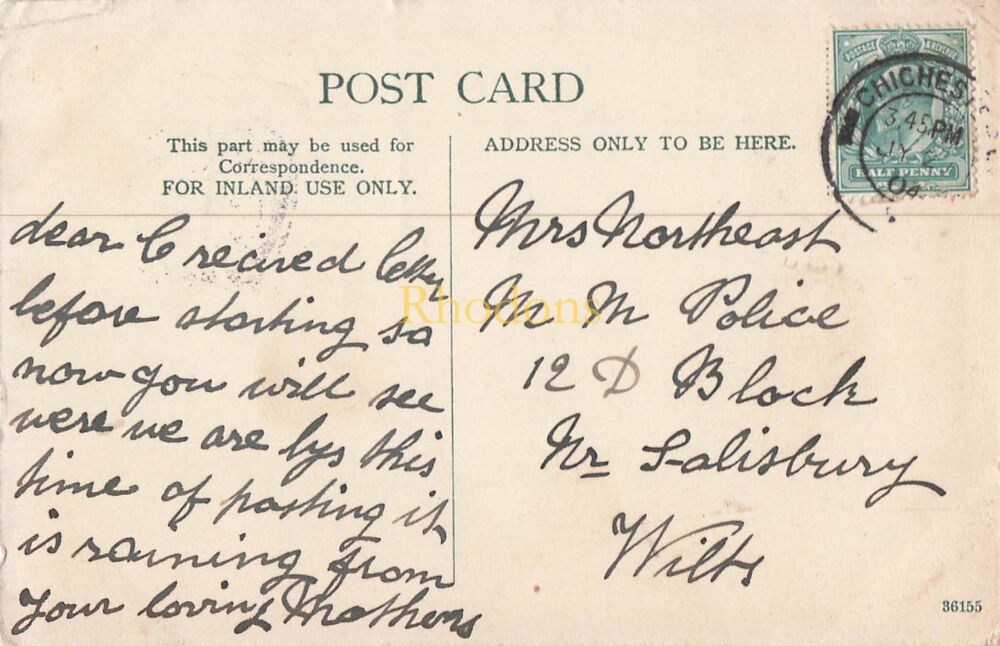 POST CARD
This part may be used for
Correspondence.
FOR INLAND USE ONLY.
ADDRESS ONLY TO BE HERE.
POSTAGE & REVENUE
HALF PENNY
CHICHEST
3.45 PM
JY 2
04
dear I recived
before starting so
now you will see
were we are bys this
time of posting it
is raining from
your loving Mothers
Mrs Northeast
M M Police
12 D Block
Nr Salisbury
Wilts
Rhodons
36155